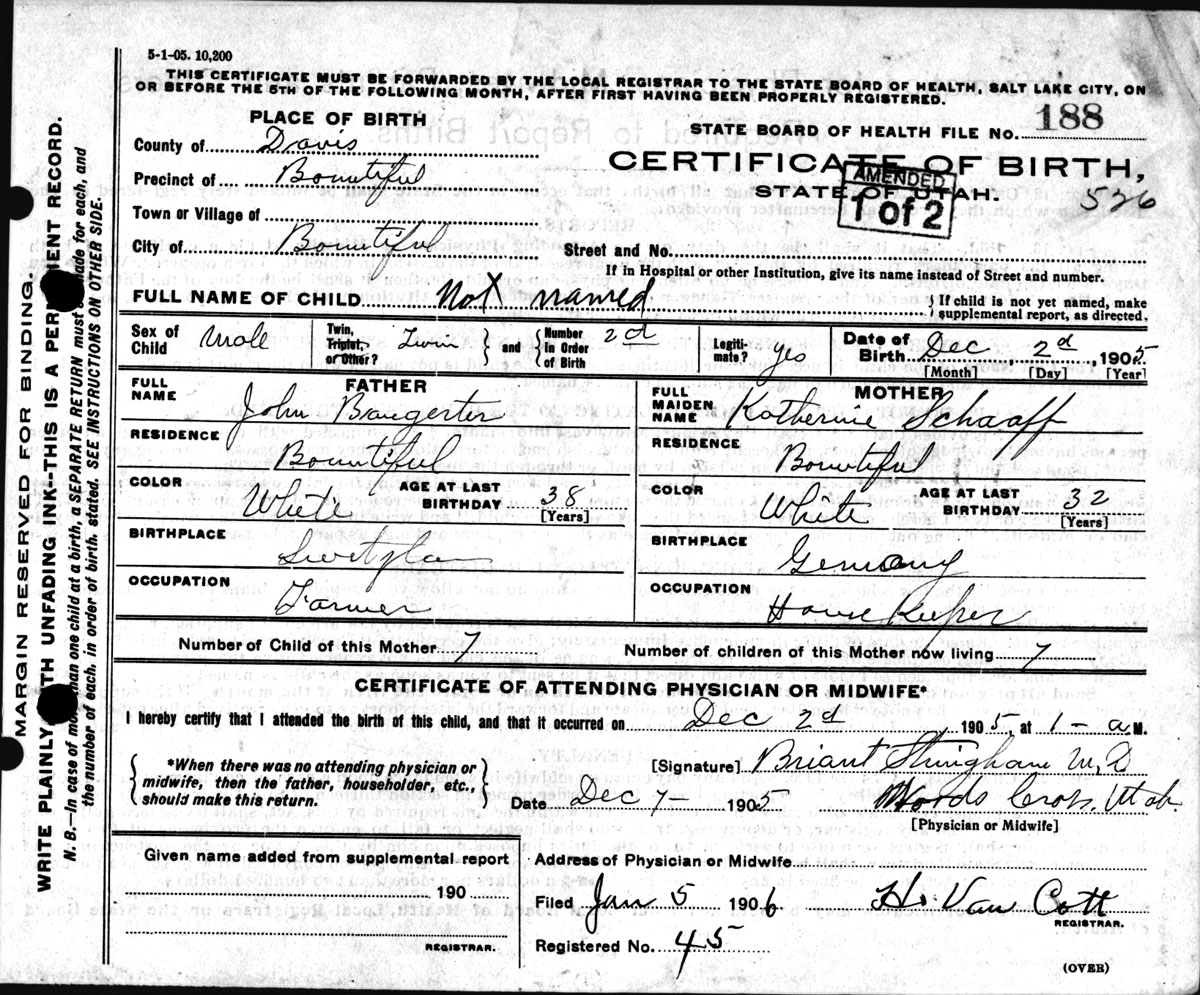 5-1-05. 10,200
THIS CERTIFICATE MUST BE FORWARDED BY THE LOCAL REGISTRAR TO THE STATE BOARD OF HEALTH, SALT LAKE CITY, ON
OR BEFORE THE 5TH OF THE FOLLOWING MONTH, AFTER FIRST HAVING BEEN PROPERLY REGISTERED.
PLACE OF BIRTH
STATE BOARD OF HEALTH FILE NO. 188
County of Davis
CERTIFICATE OF BIRTH,
Precinct of Bountiful
STATE OF UTAH.
AMENDED
1 of 2
526
Town or Village of
City of Bountiful
Street and No.
If in Hospital or other Institution, give its name instead of Street and number.
FULL NAME OF CHILD. Not named
If child is not yet named, make
supplemental report, as directed.
Sex of Child Male
Twin, Triplet, or Other? Twin and Number In Order of Birth 2d
Legitimate? yes
Date of Birth Dec 2d 1905
[Month] [Day] [Year]
FATHER
FULL NAME John Bangerter
RESIDENCE Bountiful
COLOR White
AGE AT LAST BIRTHDAY 38
[Years]
BIRTHPLACE
OCCUPATION Farmer
MOTHER
FULL MAIDEN NAME Katherine Schaaff
RESIDENCE Bountiful
COLOR White
AGE AT LAST BIRTHDAY 32
[Years]
BIRTHPLACE Germany
OCCUPATION House Keeper
Number of Child of this Mother 7
Number of children of this Mother now living 7
CERTIFICATE OF ATTENDING PHYSICIAN OR MIDWIFE*
I hereby certify that I attended the birth of this child, and that it occurred on Dec 2d 1905, at 1- a M.
*When there was no attending physician or
midwife, then the father, householder, etc.,
should make this return.
[Signature] Briant Stringham M.D
Date Dec 7- 1905
Woods Cross, Utah
[Physician or Midwife]
Given name added from supplemental report
190
REGISTRAR.
Address of Physician or Midwife
Filed Jan 5 1906
H. Van Cott
REGISTRAR.
Registered No. 45
(OVER)
MARGIN RESERVED FOR BINDING.
WRITE PLAINLY WITH UNFADING INK—THIS IS A PERMANENT RECORD.
N. B.—In case of more than one child at a birth, a SEPARATE RETURN must be made for each, and
the number of each, in order of birth, stated. SEE INSTRUCTIONS ON OTHER SIDE.